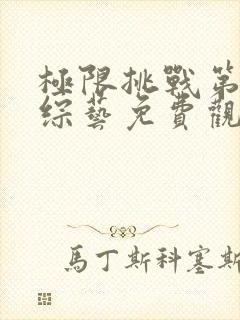 極限挑戰第
綜藝免費觀
馬丁斯科塞斯